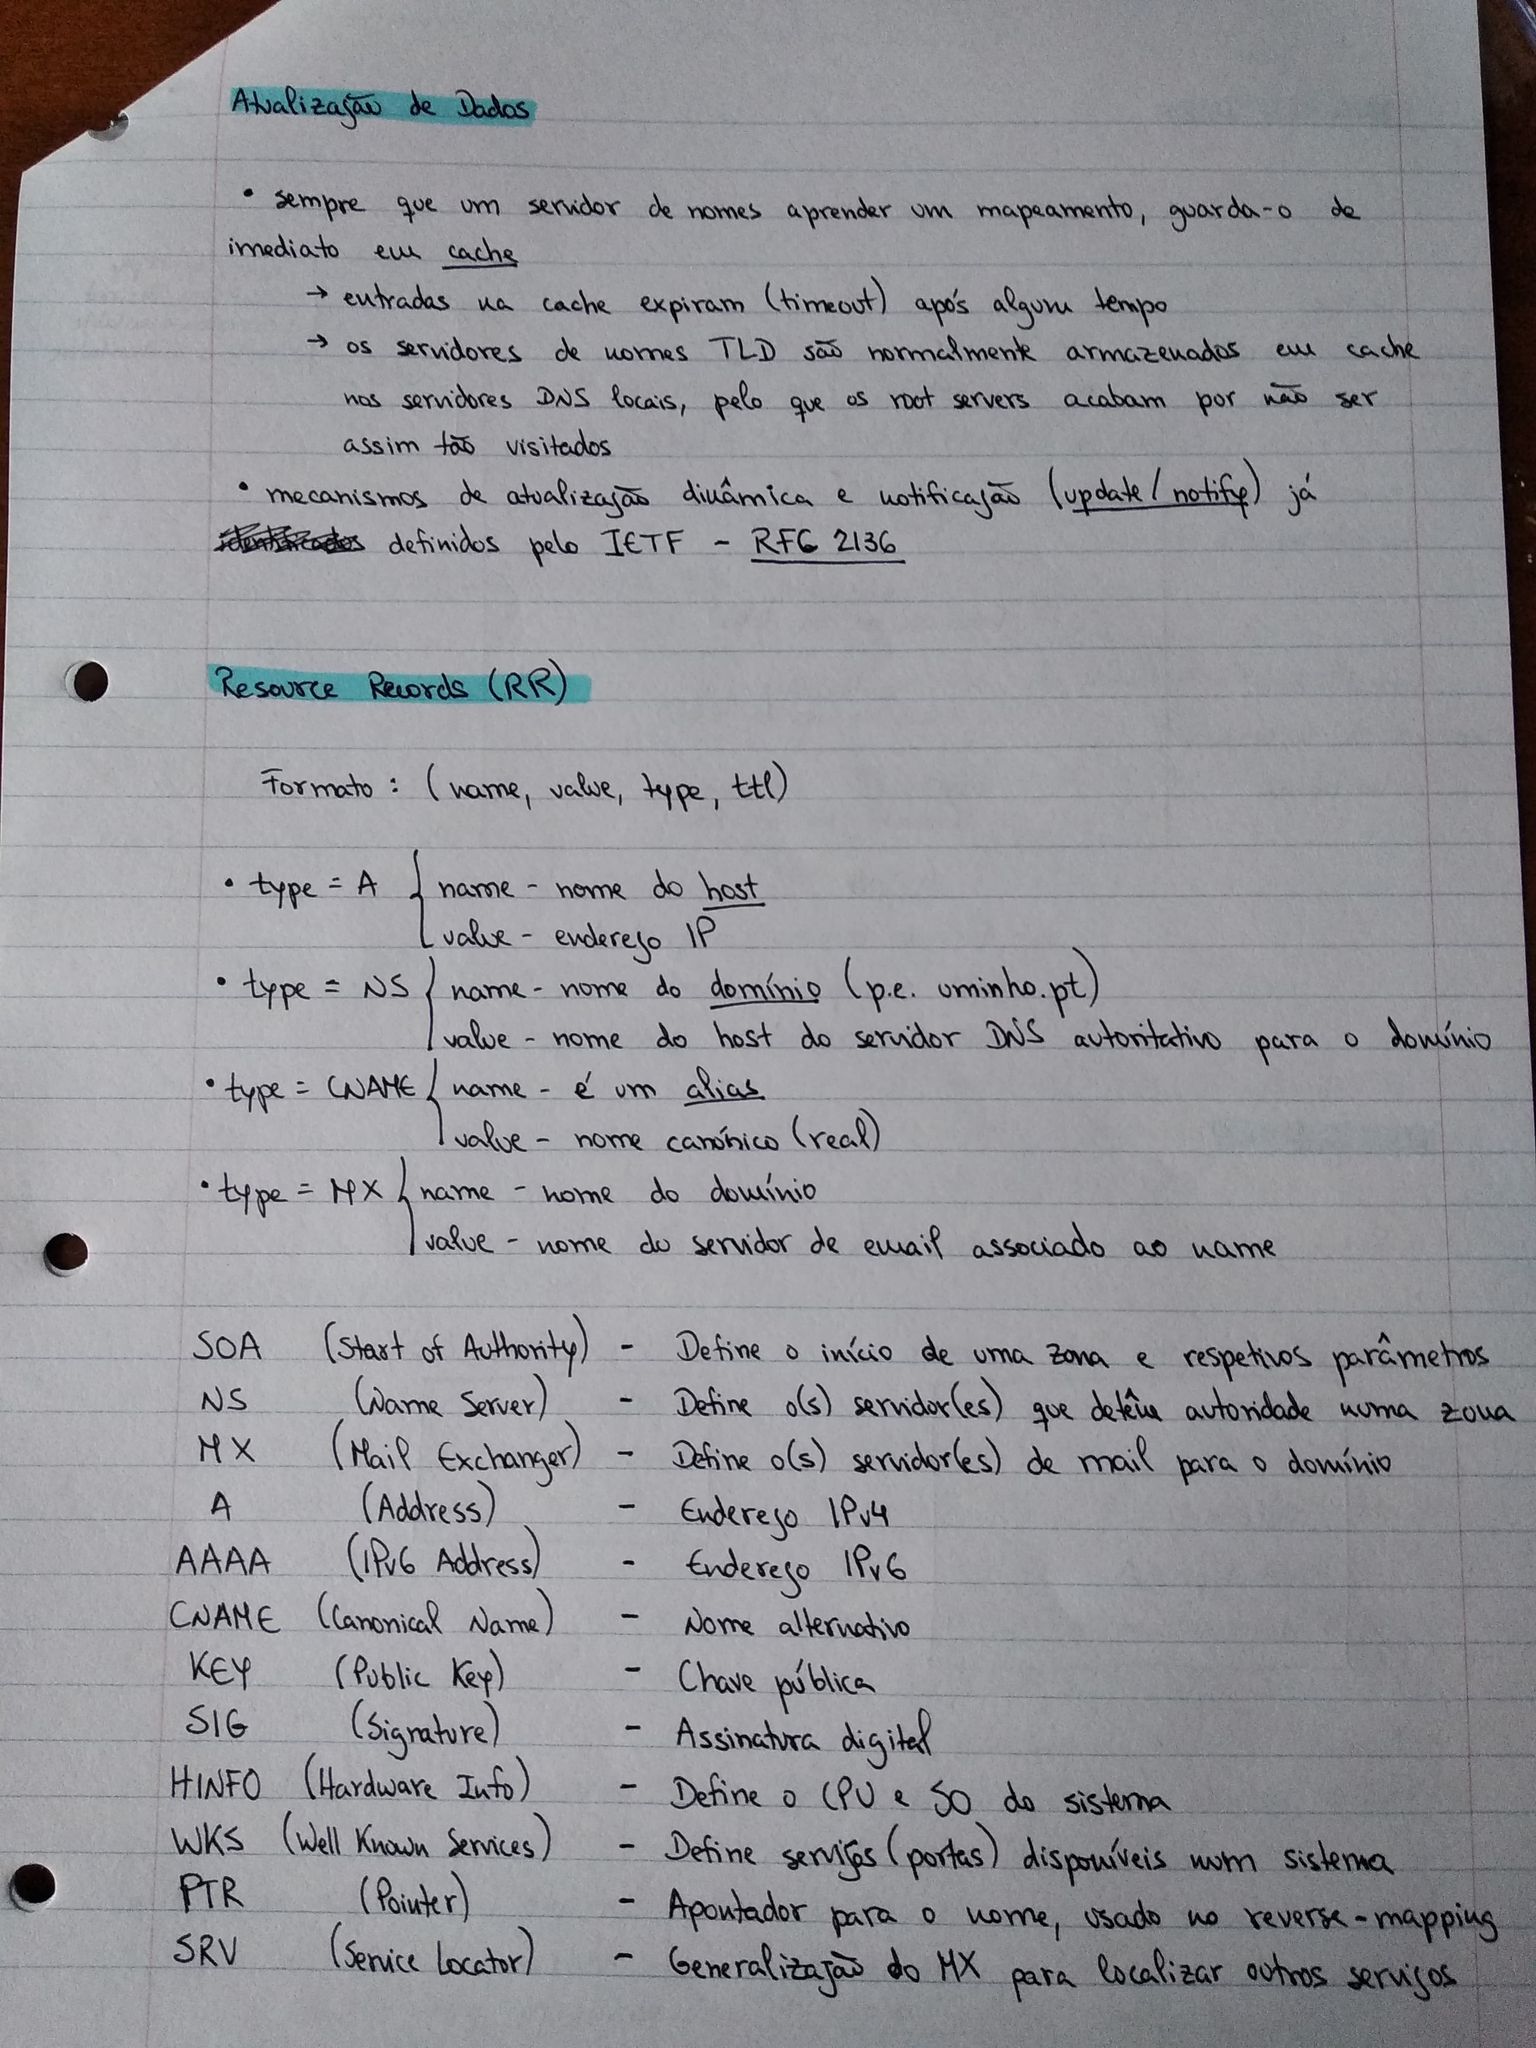 Atualização de Dados
• sempre que um servidor de nomes aprender um mapeamento, guarda-o de
imediato em cache
→ entradas na cache expiram (timeout) após algum tempo
→ os servidores de nomes TLD são normalmente armazenados em cache
nos servidores DNS locais, pelo que os root servers acabam por não ser
assim tão visitados
• mecanismos de atualização dinâmica e notificação (update/notify) já
definidos pelo IETF - RFC 2136
Resource Records (RR)
Formato: (name, value, type, ttl)
• type = A { name - nome do host
value - endereço IP
• type = NS { name - nome do domínio (p.e. uminho.pt)
value - nome do host do servidor DNS autoritativo para o domínio
• type = CNAME { name - é um alias
value - nome canónico (real)
• type = MX { name - nome do domínio
value - nome do servidor de email associado ao name
SOA (Start of Authority) - Define o início de uma zona e respetivos parâmetros
NS (Name Server) - Define o(s) servidor(es) que detêm autoridade numa zona
MX (Mail Exchanger) - Define o(s) servidor(es) de mail para o domínio
A (Address) - Endereço IPv4
AAAA (IPv6 Address) - Endereço IPv6
CNAME (Canonical Name) - Nome alternativo
KEY (Public Key) - Chave pública
SIG (Signature) - Assinatura digital
HINFO (Hardware Info) - Define o CPU e SO do sistema
WKS (Well Known Services) - Define serviços (portas) disponíveis num sistema
PTR (Pointer) - Apontador para o nome, usado no reverse-mapping
SRV (Service Locator) - Generalização do MX para localizar outros serviços